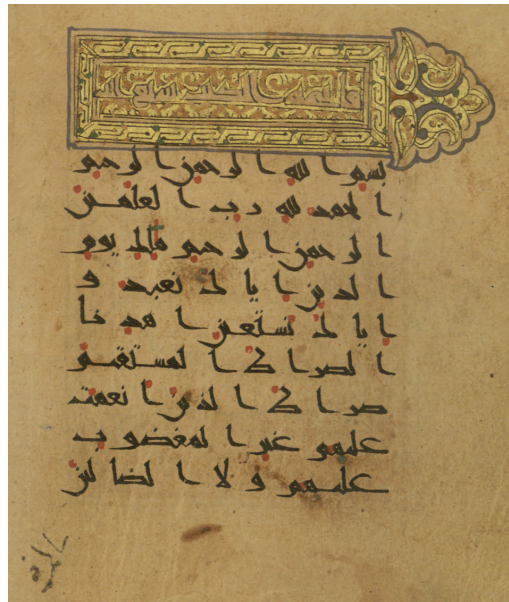 بسم الله الرحمن الرحيم
الحمد لله رب العلمين
الرحمن الرحيم ملك يوم
الدين اياك نعبد و
اياك نستعين اهدنا
الصراط المستقيم
صراط الذين انعمت
عليهم غير المغضوب
عليهم ولا الضالين